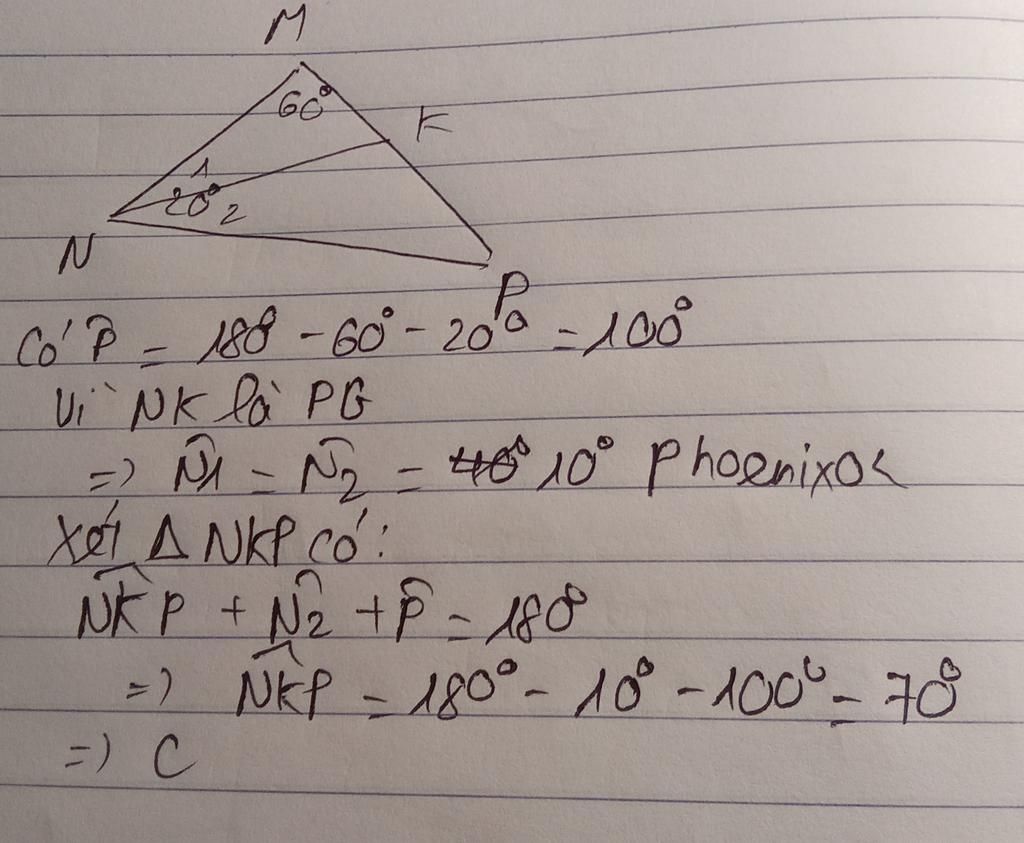 M
60°
K
1
20°
2
N
P
Có P̂ = 180° - 60° - 20° = 100°
Vì NK là PG
=> N̂1 = N̂2 = 10° Phoenixoc
Xét Δ NKP có:
N̂KP + N̂2 + P̂ = 180°
=> N̂KP = 180° - 10° - 100° = 70°
=> C